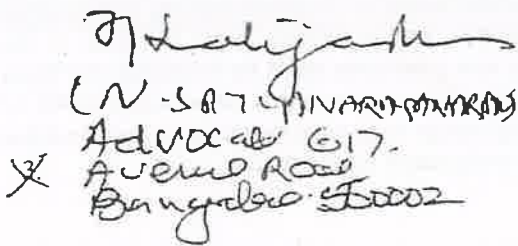 (N. SATHYANARAYANARAO)
Advocate 617.
Avenue Road
Bangalore 560002